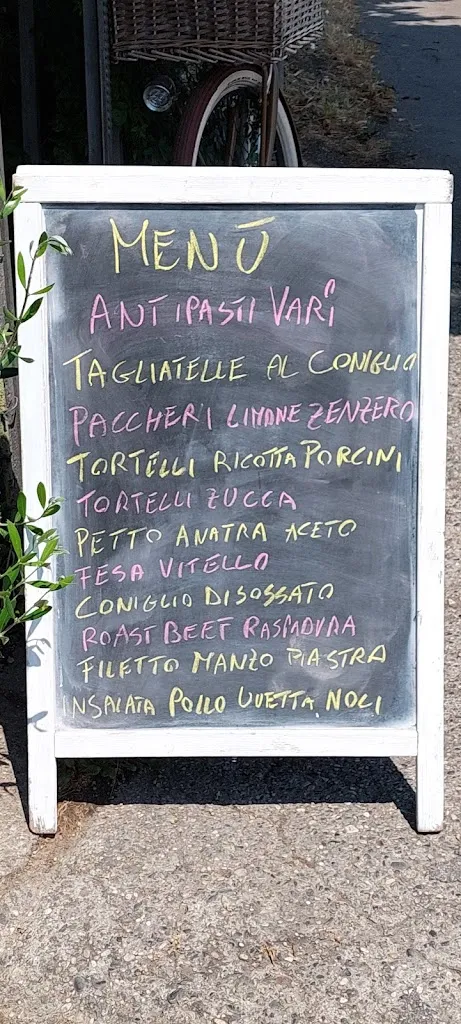 MENÙ
ANTIPASTI VARI
TAGLIATELLE AL CONIGLIO
PACCHERI LIMONE ZENZERO
TORTELLI RICOTTA PORCINI
TORTELLI ZUCCA
PETTO ANATRA ACETO
FESA VITELLO
CONIGLIO DISOSSATO
ROAST BEEF RASPADURA
FILETTO MANZO PIASTRA
INSALATA POLLO UVETTA NOCI